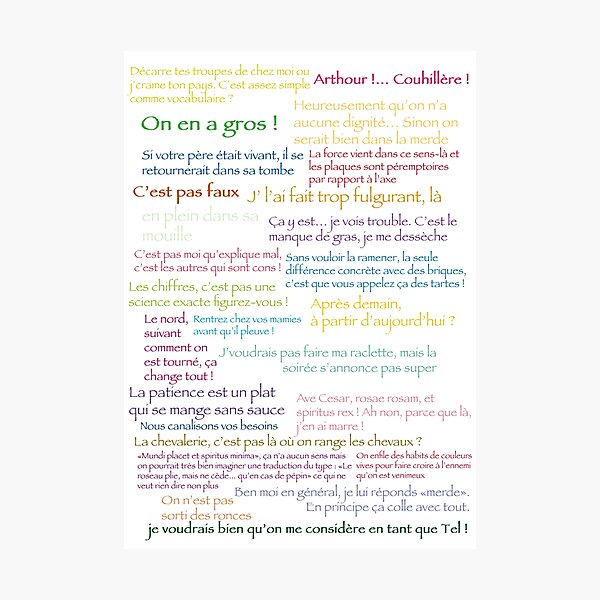 Décarre tes troupes de chez moi ou
j'crame ton pays. C'est assez simple
comme vocabulaire ?
Arthour !... Couhillère !
On en a gros !
Heureusement qu'on n'a
aucune dignité... Sinon on
serait bien dans la merde
Si votre père était vivant, il se
retournerait dans sa tombe
La force vient dans ce sens-là et
les plaques sont péremptoires
par rapport à l'axe
C'est pas faux
J' l'ai fait trop fulgurant, là
en plein dans sa
mouille
Ça y est... je vois trouble. C'est le
manque de gras, je me dessèche
C'est pas moi qu'explique mal,
c'est les autres qui sont cons !
Sans vouloir la ramener, la seule
différence concrète avec des briques,
c'est que vous appelez ça des tartes !
Les chiffres, c'est pas une
science exacte figurez-vous !
Après demain,
à partir d'aujourd'hui ?
Le nord,
suivant
comment on
est tourné, ça
change tout !
Rentrez chez vos mamies
avant qu'il pleuve !
J'voudrais pas faire ma raclette, mais la
soirée s'annonce pas super
La patience est un plat
qui se mange sans sauce
Ave Cesar, rosae rosam, et
spiritus rex ! Ah non, parce que là,
j'en ai marre !
Nous canalisons vos besoins
La chevalerie, c'est pas là où on range les chevaux ?
«Mundi placet et spiritus minima», ça n'a aucun sens mais
on pourrait très bien imaginer une traduction du type : «Le
roseau plie, mais ne cède... qu'en cas de pépin» ce qui ne
veut rien dire non plus
On enfile des habits de couleurs
vives pour faire croire à l'ennemi
qu'on est venimeux
On n'est pas
sorti des ronces
Ben moi en général, je lui réponds «merde».
En principe ça colle avec tout.
je voudrais bien qu'on me considère en tant que Tel !